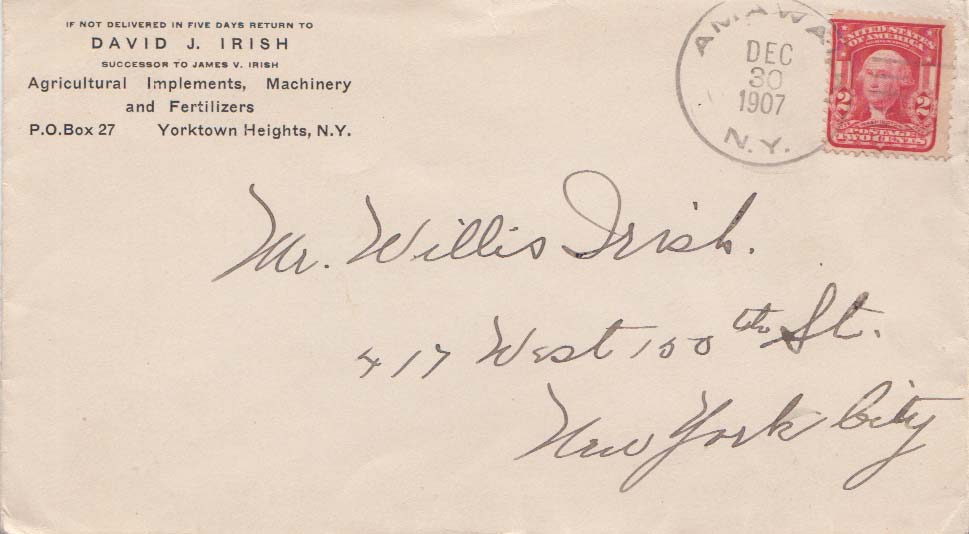 IF NOT DELIVERED IN FIVE DAYS RETURN TO
DAVID J. IRISH
SUCCESSOR TO JAMES V. IRISH
Agricultural Implements, Machinery
and Fertilizers
P.O.Box 27 Yorktown Heights, N.Y.
AMAWA
DEC
30
1907
N.Y.
UNITED STATES
OF AMERICA
2 2
POSTAGE
TWO CENTS
Mr. Willis Irish.
417 West 150th St.
New York City